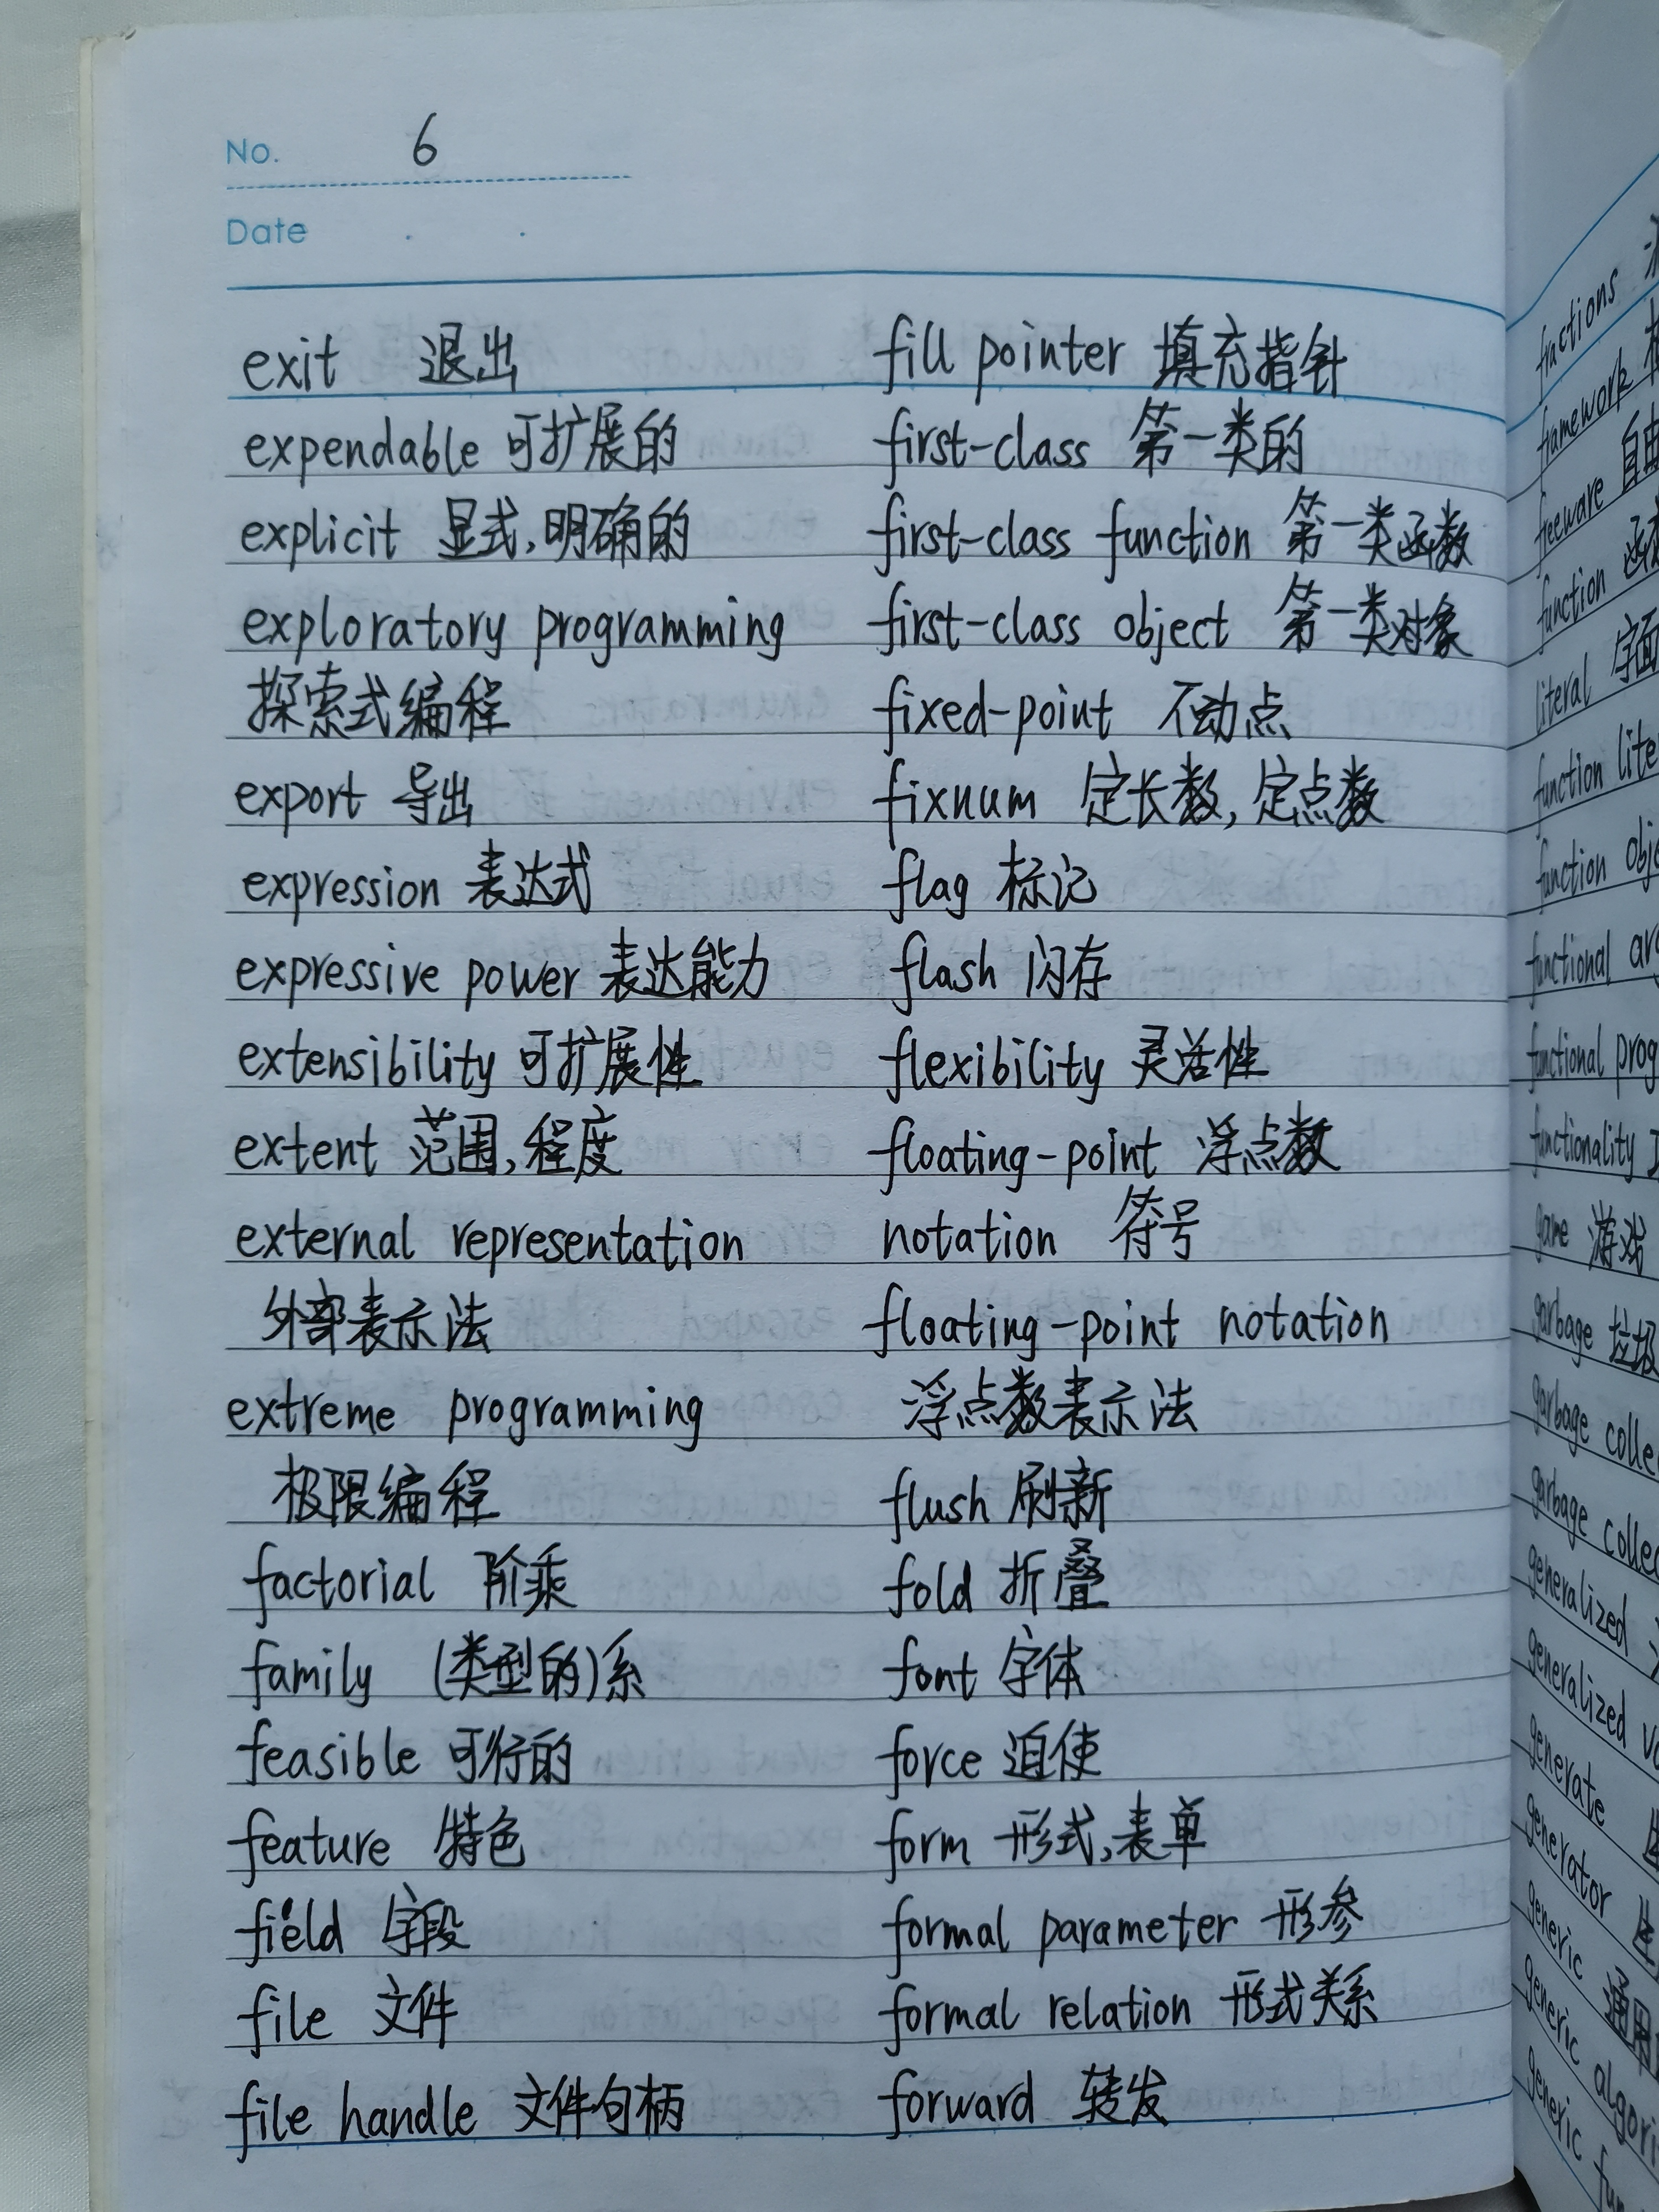 No. 6
Date
exit 退出
expendable 可扩展的
explicit 显式,明确的
exploratory programming
探索式编程
export 导出
expression 表达式
expressive power 表达能力
extensibility 可扩展性
extent 范围,程度
external representation
外部表示法
extreme programming
极限编程
factorial 阶乘
family (类型的)系
feasible 可行的
feature 特色
field 字段
file 文件
file handle 文件句柄
fill pointer 填充指针
first-class 第一类的
first-class function 第一类函数
first-class object 第一类对象
fixed-point 不动点
fixnum 定长数,定点数
flag 标记
flash 闪存
flexibility 灵活性
floating-point 浮点数
notation 符号
floating-point notation
浮点数表示法
flush 刷新
fold 折叠
font 字体
force 迫使
form 形式,表单
formal parameter 形参
formal relation 形式关系
forward 转发
fractions
framework
freeware 自由
function 函
literal 字面
function
function
functional
functional
functionality
game 游戏
garbage 垃圾
garbage
garbage
generalized
generalized
generate
generator
generic 通用
generic
generic